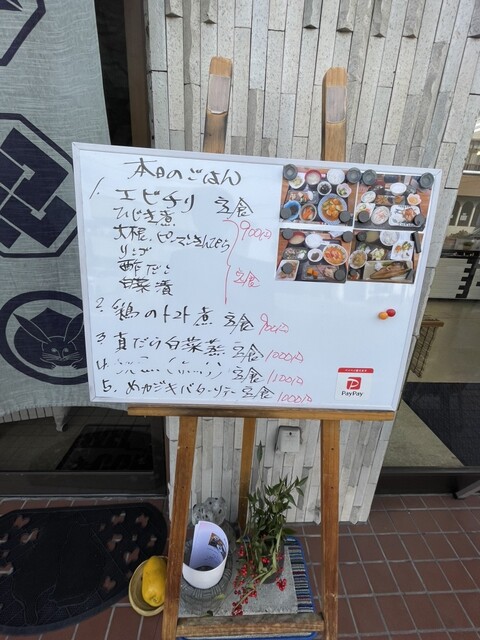 本日のごはん
1. エビチリ 定食
ひじき煮 900円
大根、ピーマンきんぴら
リンゴ
酢だこ 定食
白菜漬
2. 鶏のトマト煮 定食 900円
3. 真だら白菜蒸 定食 1000円
定食 1100円
5. めカジキバターソテー 定食 1000円
PayPay